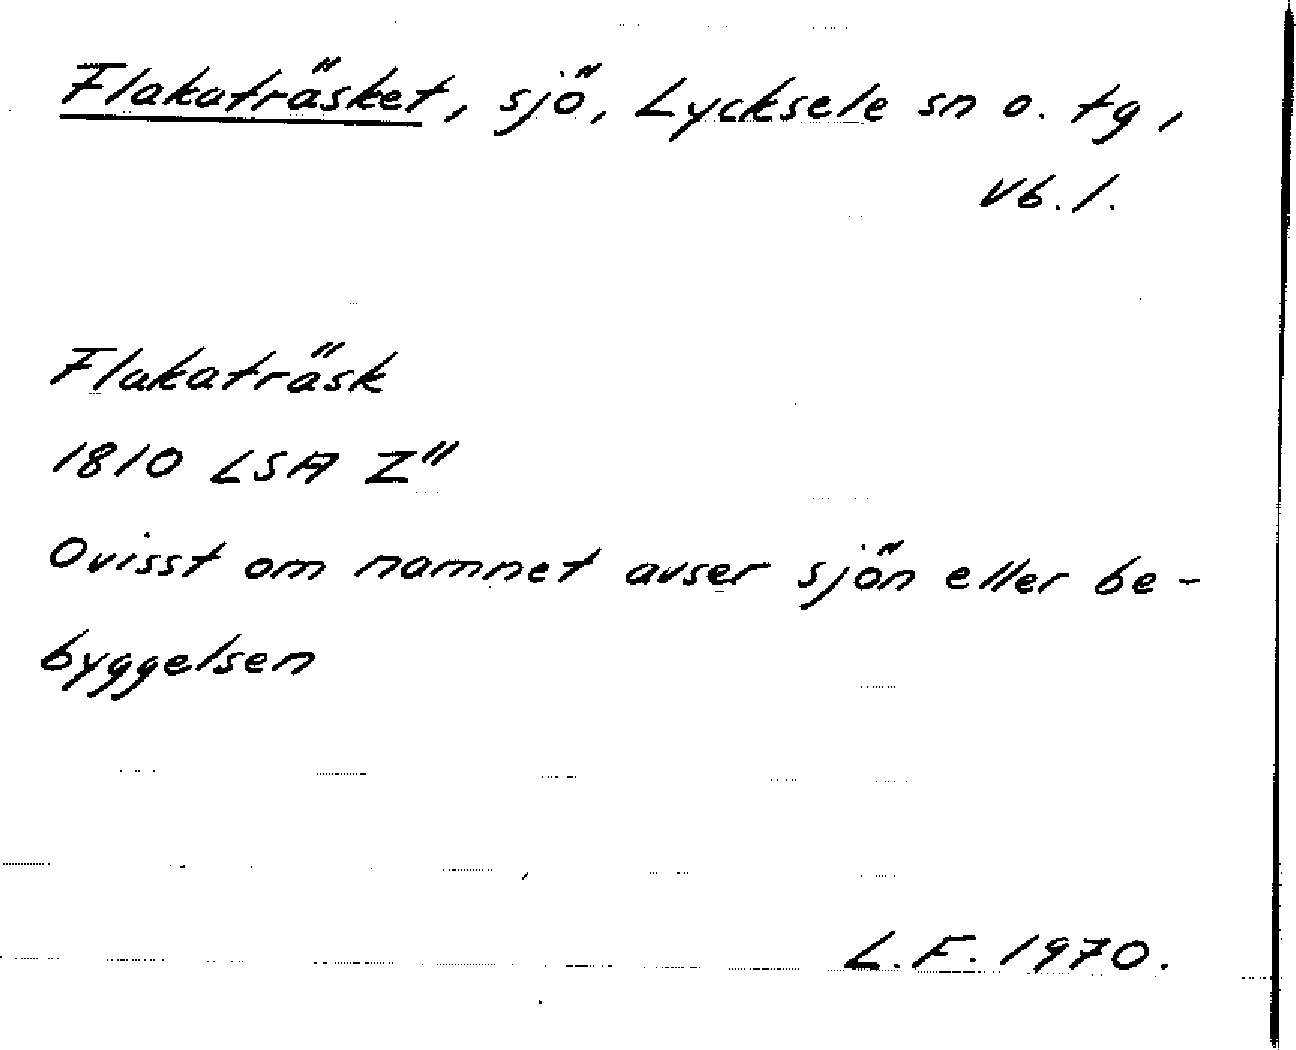 Flakaträsket, sjö, Lycksele sn o. tg,
Vb. l.
Flakaträsk
1810 LSA Z"
Ovisst om namnet avser sjön eller be-
byggelsen
L.F. 1970.